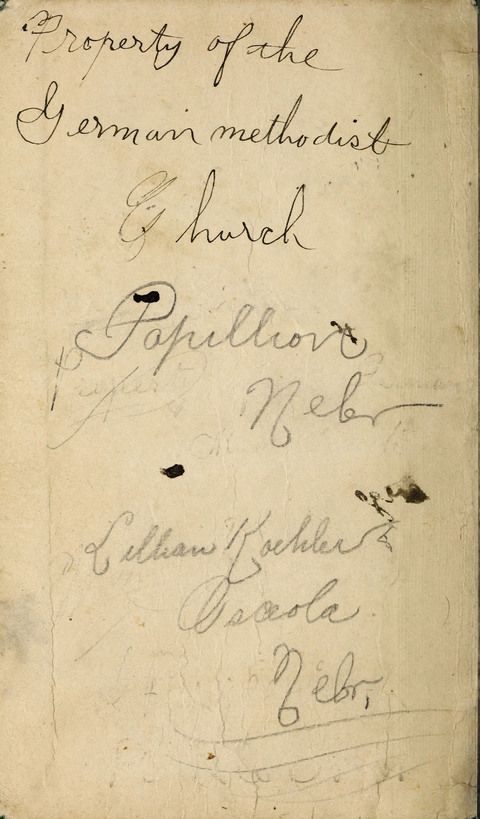 Property of the
German methodist
Church
Papillion
Nebr
Lillian Koehler
Osceola
Nebr.